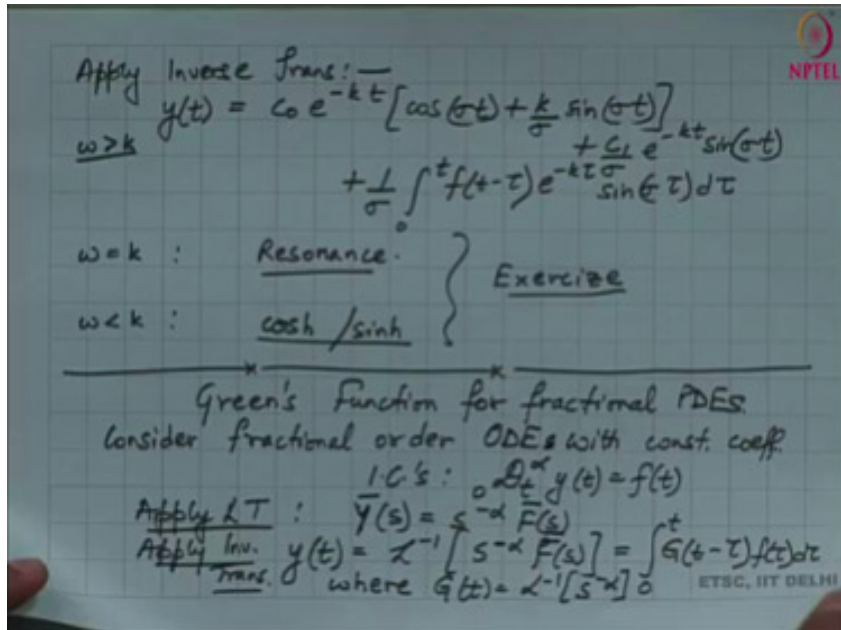 Apply Inverse Trans: —
NPTEL
y(t) = c₀ e^{-kt} [cos(σt) + k/σ sin(σt)]
ω>k + c₁/σ e^{-kt} sin(σt)
+ 1/σ ∫₀^t f(t-τ) e^{-kτ} sin(σ τ) dτ
ω = k : Resonance. } Exercize
ω < k : cosh / sinh
Green's Function for fractional PDEs.
Consider fractional order ODEs with const. coeff.
I.C.'s : ₀D_t^α y(t) = f(t)
Apply LT : Ȳ(s) = s^{-α} F̄(s)
Apply Inv. Trans. y(t) = L⁻¹ [s^{-α} F̄(s)] = ∫₀^t G(t-τ) f(τ) dτ
where G(t) = L⁻¹ [s^{-α}]
ETSC, IIT DELHI